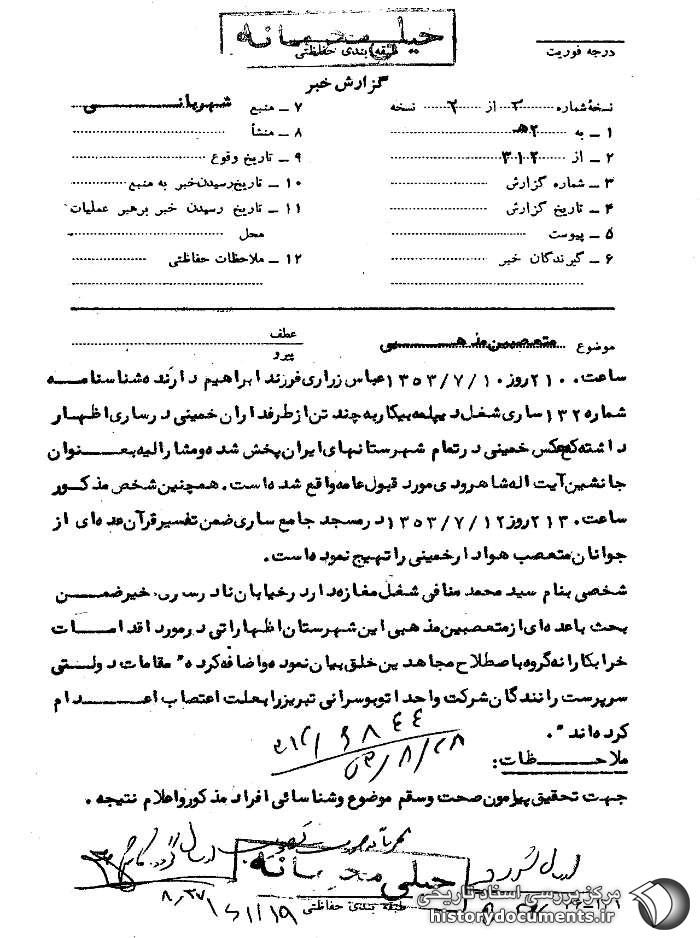 خیلی محرمانه
طبقه بندی حفاظتی
درجه فوریت
گزارش خبر
نسخهٔ شماره ۳ از ۲ نسخه
۱ ـ به ۲هـ
۲ ـ از ۳۱۲
۳ ـ شماره گزارش
۴ ـ تاریخ گزارش
۵ ـ پیوست
۶ ـ گیرندگان خبر
۷ ـ منبع شهربانی
۸ ـ منشأ
۹ ـ تاریخ وقوع
۱۰ ـ تاریخ رسیدن خبر به منبع
۱۱ ـ تاریخ رسیدن خبر برهبر عملیات
محل
۱۲ ـ ملاحظات حفاظتی
موضوع متعصبین مذهبی
عطف
پیرو
ساعت ۲۱۰۰ روز ۱۳۵۳/۷/۱۰ عباس زراری فرزند ابراهیم دارنده شناسنامه
شماره ۱۳۲ ساری شغل دیپلمه بیکار به چند تن از طرفداران خمینی در ساری اظهار
داشته که عکس خمینی در تمام شهرستانهای ایران پخش شده و مشارالیه بعنوان
جانشین آیت اله شاهرودی مورد قبول عامه واقع شده است. همچنین شخص مذکور
ساعت ۲۱۳۰ روز ۱۳۵۳/۷/۱۲ در مسجد جامع ساری ضمن تفسیر قرآن عده ای از
جوانان متعصب هوادار خمینی را تهییج نموده است.
شخصی بنام سید محمد منافی شغل مغازه دار در خیابان نادر ساری، اخیر ضمن
بحث با عده ای از متعصبین مذهبی این شهرستان اظهاراتی در مورد اقدامات
خرابکارانه گروه باصطلاح مجاهدین خلق بیان نموده و اضافه کرده " مقامات دولتی
سرپرست رانندگان شرکت واحد اتوبوسرانی تبریز را بعلت اعتصاب اعدام
کرده اند ".
۳۱۲/۶۸۴۴
۵۳/۸/۲۸
ملاحظات:
جهت تحقیق پیرامون صحت و سقم موضوع و شناسائی افراد مذکور و اعلام نتیجه.
خیلی محرمانه
طبقه بندی حفاظتی
مرکز بررسی اسناد تاریخی
historydocuments.ir